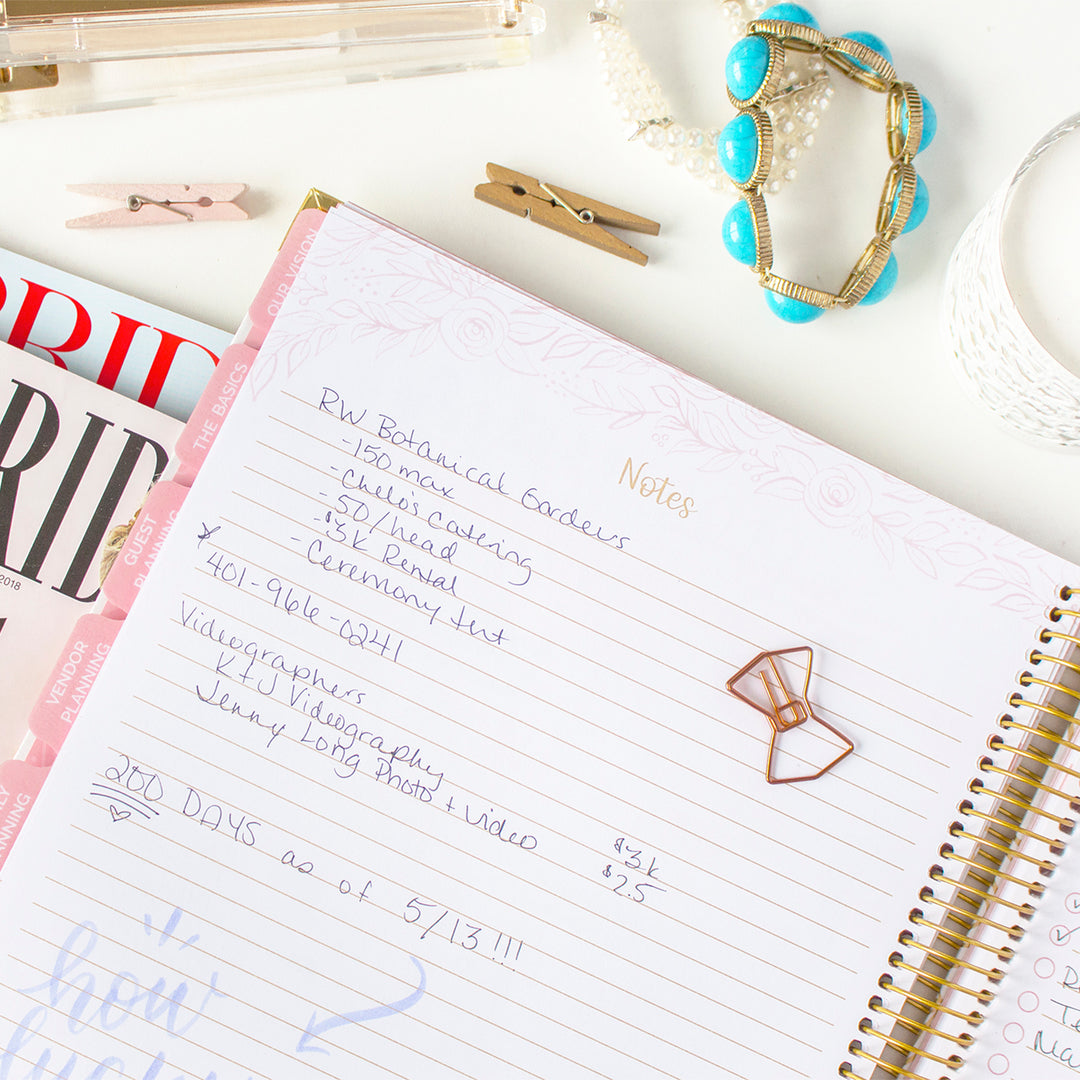 BRI
RID
2018
OUR VISION
THE BASICS
GUEST
PLANNING
VENDOR
PLANNING
Notes
RW Botanical Gardens
-150 max
-Chelo's catering
-50/head
-$3k Rental
-Ceremony tent
401-966-0241
Videographers
K+J Videography $3k
Jenny Long Photo + Video $2.5
200 DAYS as of 5/13!!!
how